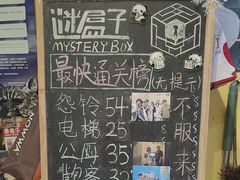 谜盒子
MYSTERY BOX
最快通关榜(无提示)
怨铃 54
电梯 25
公厕 35
32
不服来